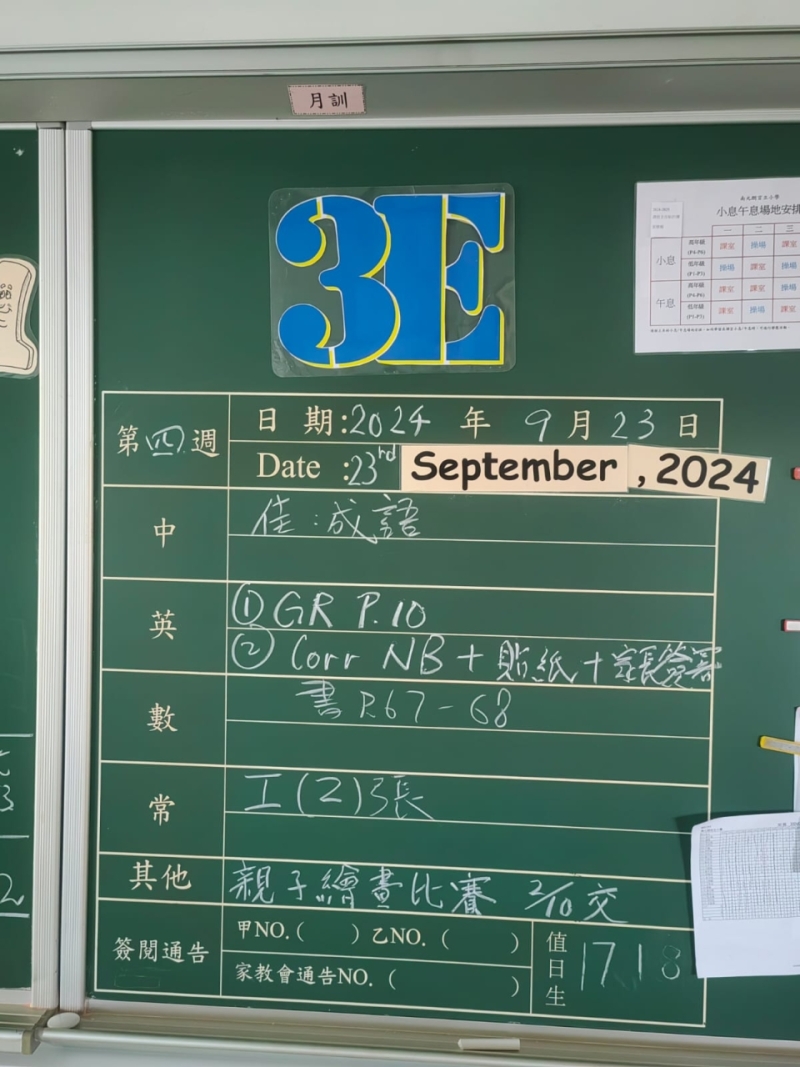 月訓
3E
小息午息場地安排
一 二 三
小息
高年級 (P4-P6) 課室 操場 課室
低年級 (P1-P3) 操場 課室 操場
午息
高年級 (P4-P6) 課室 課室 操場
低年級 (P1-P3) 課室 操場 課室
第四週
日期:2024年9月23日
Date :23rd September, 2024
中
佳:成語
英
①GR P.10
② Corr NB + 貼紙 + 家長簽署
數
書 P.67-68
常
工(2)3張
其他
親子繪畫比賽 2/10交
簽閱通告
甲NO.( )乙NO.( )
家教會通告NO.( )
值日生
17.18